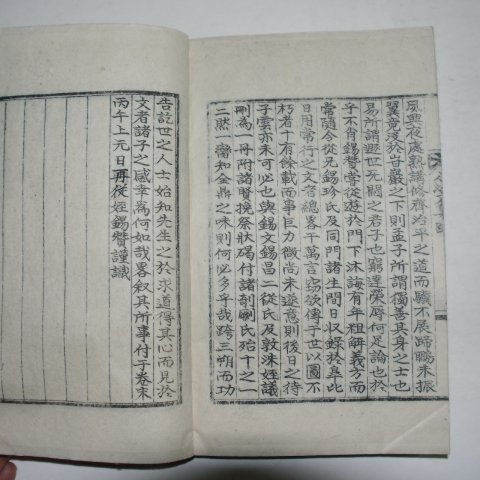 風興夜處熟講修齊治平之道而願不展歸鵬未振
翼竟後於岩巖之下則孟子所謂獨善其身之士也
易所謂遯世无悶之君子也窮達榮辱何足論也於
乎不肖錫贊嘗從遊於門下沐誨有年粗解義方而
常隨今從兄錫珍氏及同門諸生問日收錄於阜比
日用常行之文者總畧千萬言竊欲傳于世以圖不
朽者十有餘載而事巨力微尚未遂意則後日之待
子雲亦未可必也與錫文錫昌二從氏及敦洙姪議
刪為一冊附諸賢挽祭狀碣付諸剞劂氏殆十之一
二然一臠知金鼎之味則何必多乎哉跨三朔而功
告訖世之人士始知先生之於求道得其心而見於
文者諸子之感幸為何如哉畧叙其所事付于卷末
丙午上元日再從姪錫贊謹識